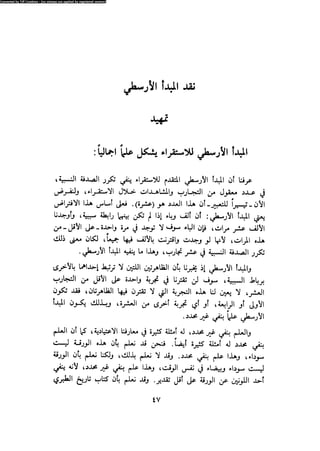 Converted by Tiff Combine - (no stamps are applied by registered version)
نقد المبدإ الأرسطي
تمهيد
المبدأ الأرسطي للاستقراء يشكل علماً إجمالياً:
عرفنا أن المبدأ الأرسطي المتقدم للاستقراء ينفي تكرر الصدفة النسبية،
في عدد معقول من التجارب والمشاهدات خلال الاستقراء، ولنفرض
الآن - لتيسير التعبير - أن هذا العدد هو (عشرة). فعلى أساس هذا الافتراض
يعني المبدأ الأرسطي: أن ألف وباء إذا لم تكن بينهما رابطة سببية، وأوجدنا
الألف عشر مرات، فإن الباء سوف لا توجد في مرة واحدة - على الأقل - من
تلك المرات، لأنها لو وجدت واقترنت بالألف فيها جميعاً، لكان معنى ذلك
تكرر الصدفة النسبية في عشر تجارب، وهذا ما ينفيه المبدأ الأرسطي.
والمبدأ الأرسطي إذ يخبرنا بأن الظاهرتين اللتين لا ترتبط إحداهما بالأخرى
برباط السببية، سوف لن تقترنا في تجربة واحدة على الأقل من التجارب
العشر، لا يعين لنا هذه التجربة التي لا تقترن فيها الظاهرتان، فقد تكون
الأولى أو الرابعة، أو أي تجربة أخرى من العشرة، وبذلك يكون المبدأ
الأرسطي علماً بنفي غير محدد.
والعلم بنفي غير محدد، له أمثلة كثيرة في معارفنا الاعتيادية، كما أن العلم
بنفي محدد له أمثلة كثيرة أيضاً. فنحن قد نعلم بأن هذه الورقة ليست
سوداء، وهذا علم بنفي محدد. وقد لا نعلم بذلك، ولكنا نعلم بأن الورقة
ليست سوداء وبيضاء في نفس الوقت، وهذا علم بنفي غير محدد، لأنه ينفي
أحد اللونين عن الورقة على أقل تقدير. وقد نعلم بأن كتاب تاريخ الطبري
٤٧